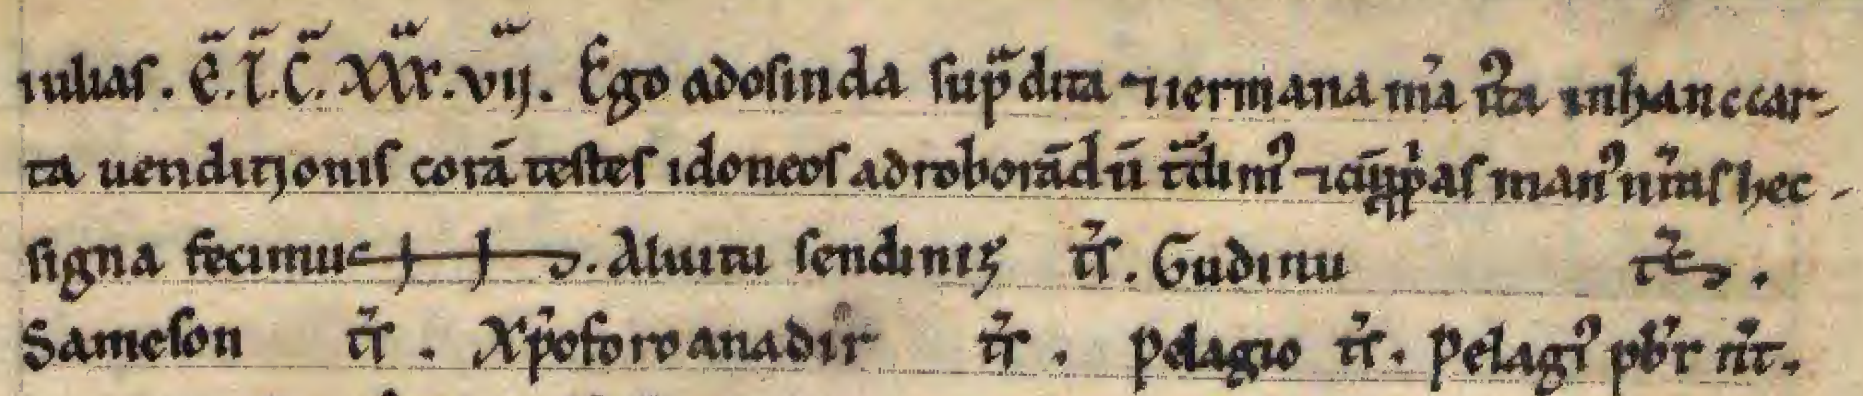 iulias. E. I. C. XXX. vij. Ego adosinda sup̄dita ⁊ iermana m̄a n̄ra inhanc car-
ta uenditionis corā testes idoneos ad roborādū t̄dimꝰ ⁊ manꝰ n̄ras hec
signa fecimus. Aluitu sendiniz t̄s. Gudinu t̄s.
Sameson t̄s. Xp̄oforo anadir t̄s. Pelagio t̄s. Pelagiꝰ pb̄r n̄t.